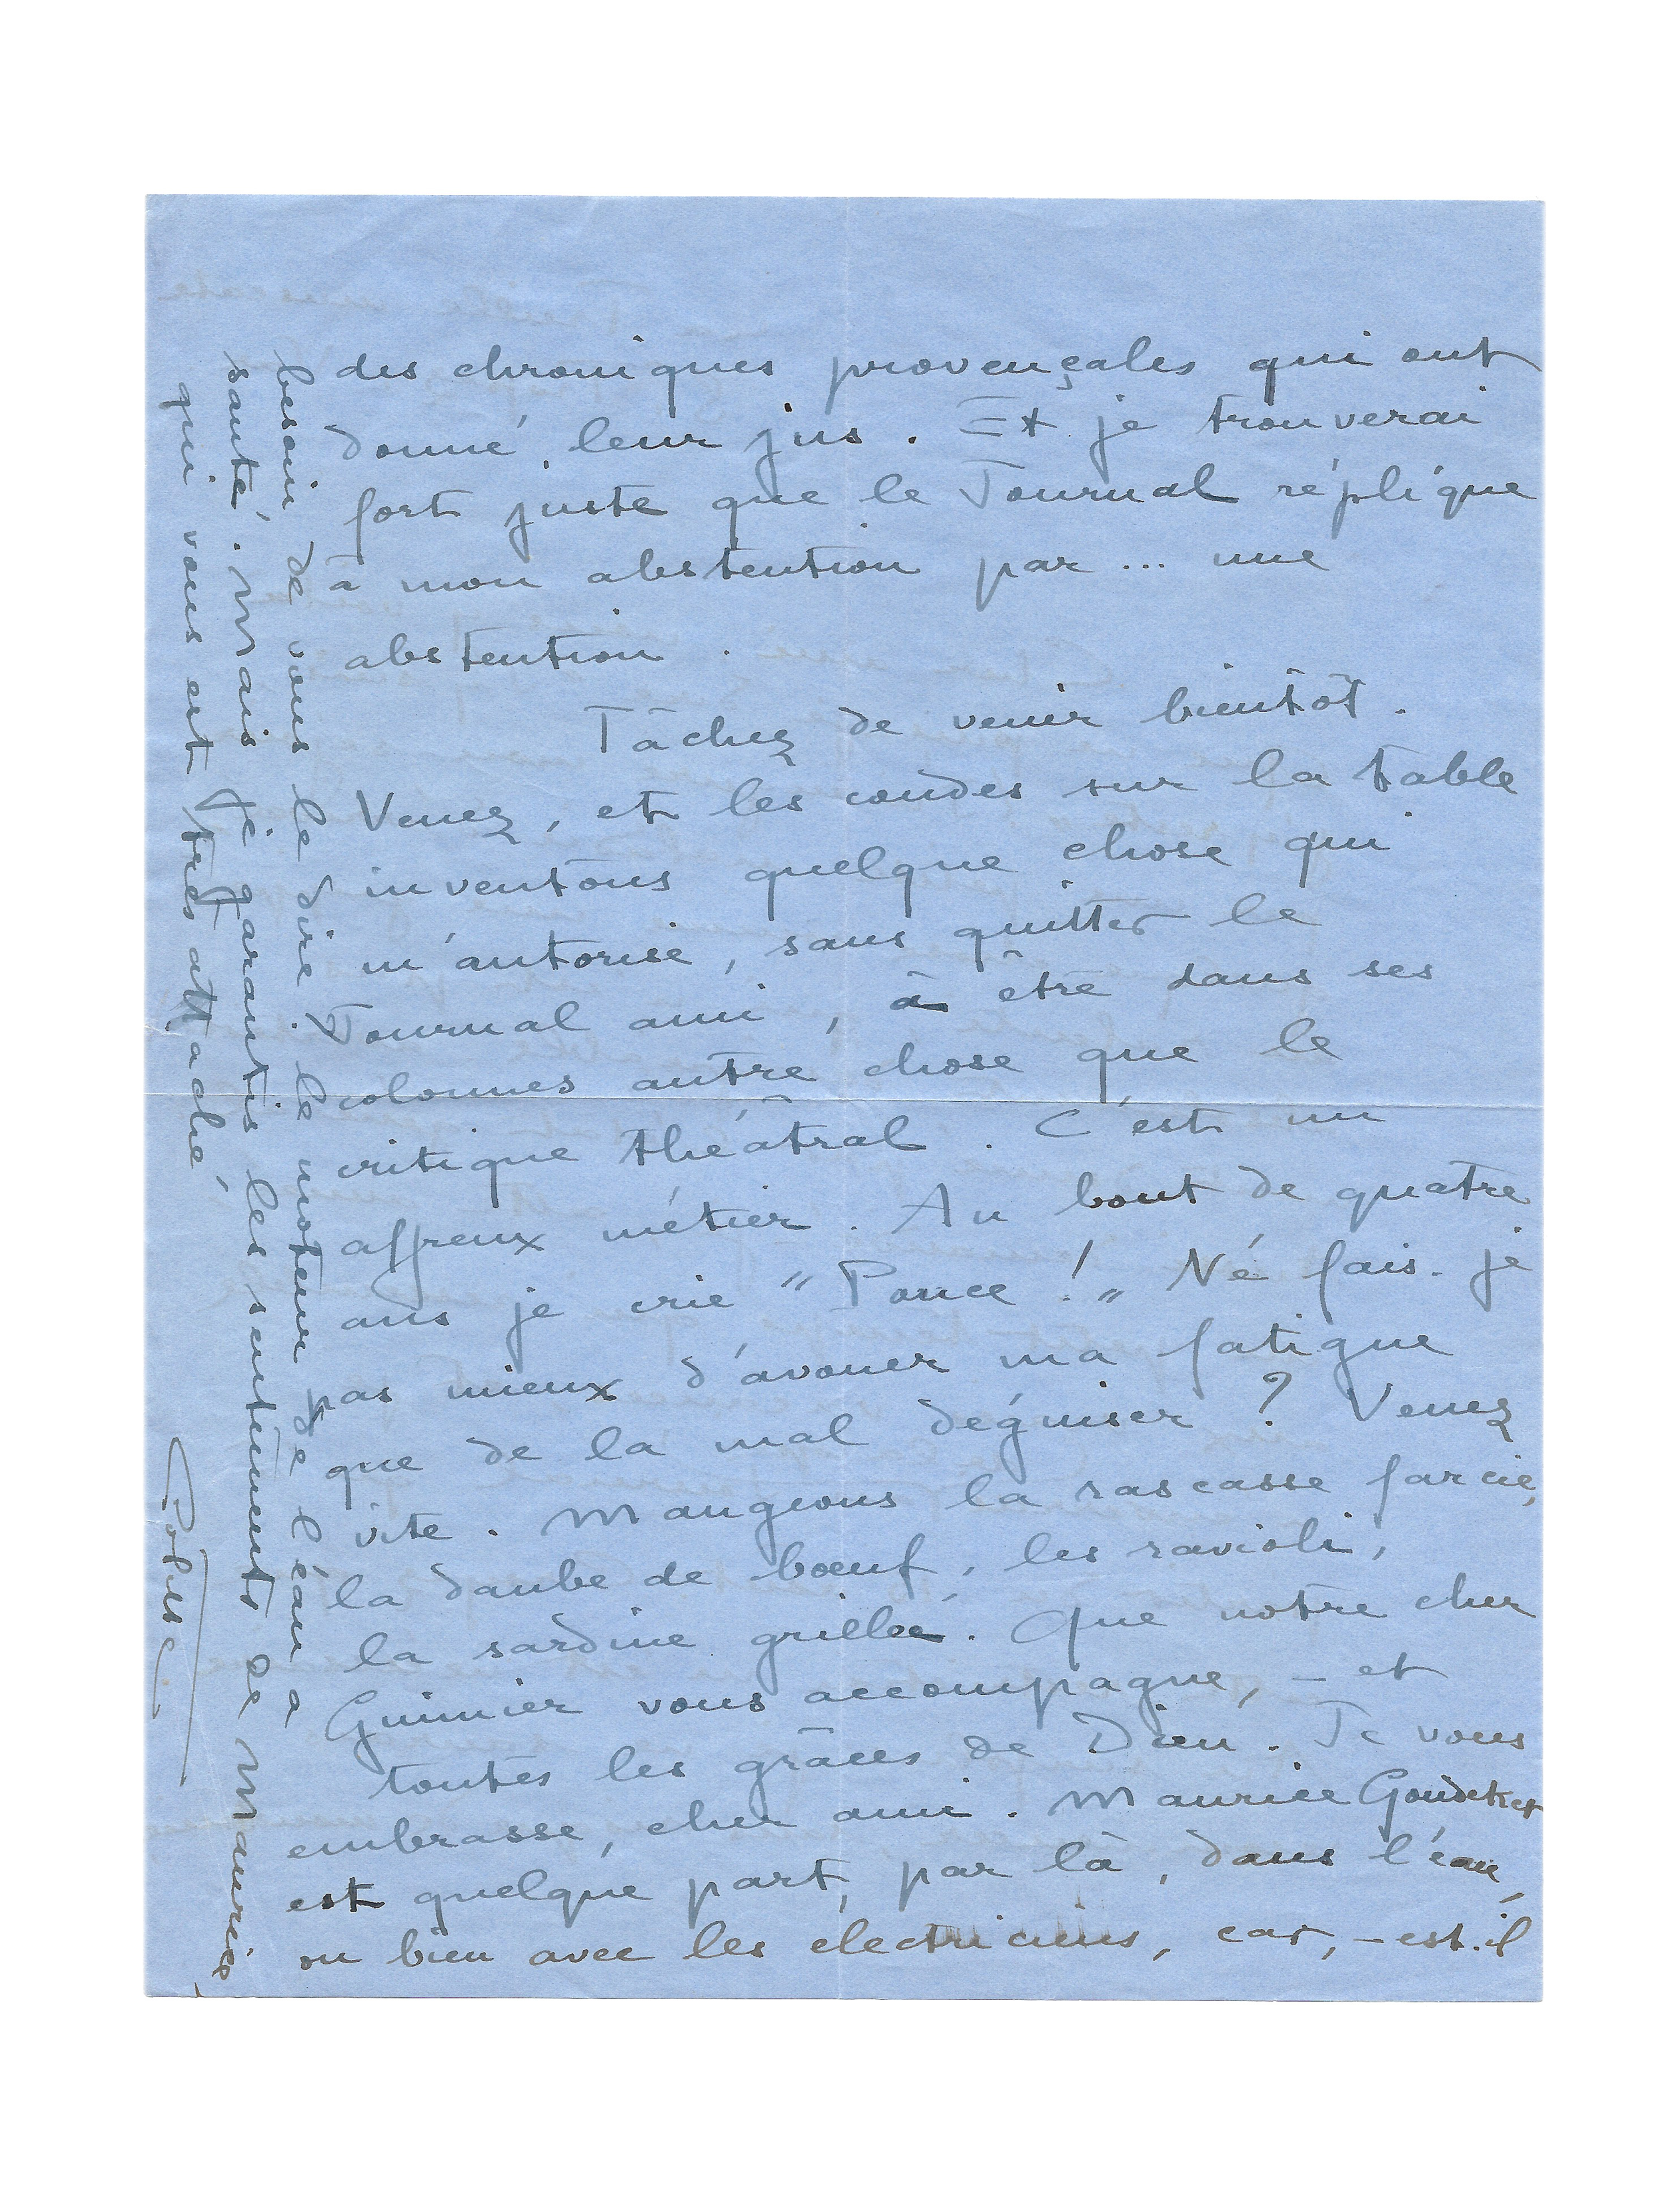 des chroniques provençales qui ont
donné leur jus. Et je trouverai
fort juste que le Journal réplique
à mon abstention par... une
abstention.
Tâchez de venir bientôt.
Venez, et les coudes sur la table
inventons quelque chose qui
m'autorise, sans quitter le
Journal ami, à être dans ses
colonnes autre chose que le
critique théâtral. C'est un
affreux métier. Au bout de quatre
ans je crie "Pouce!" Ne fais-je
pas mieux d'avouer ma fatigue
que de la mal déguiser? Venez
vite. Mangeons la rascasse farcie,
la daube de bœuf, les ravioli,
la sardine grillée. Que notre cher
Guimier vous accompagne, - et
toutes les grâces de Dieu. Je vous
embrasse, cher ami. Maurice Goudeket
est quelque part, par là, dans l'eau,
ou bien avec les électriciens, car, - est-il
besoin de vous le dire? le moteur de l'eau a
sauté. Mais je garantis les sentiments de Maurice,
qui vous est très attaché
Colette